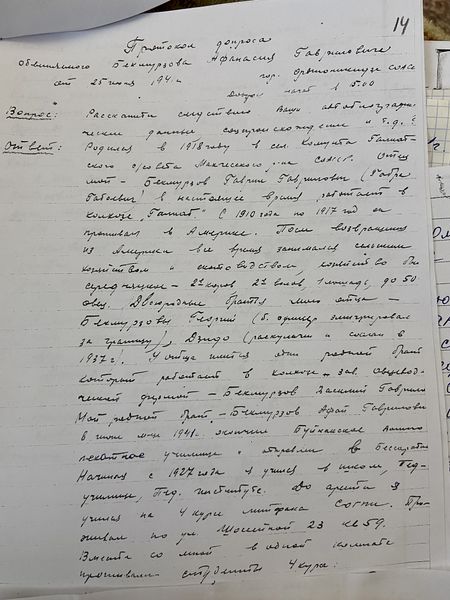 14
Протокол допроса
обвиняемого Бекмурзова Афанасия Гавриловича
от 25 июня 194 г. гор. Орджоникидзе СОАССР
Допрос начат в 5.00
Вопрос: Расскажите следствию Ваши автобиографи-
ческие данные соцпроисхождение и т.д.?
Ответ: Родился в 1918 году в сел. Комунта Галиат-
ского с/совета р-на СОАССР. Отец
мой - Бекмурзов Гаврил Гаврилович
в настоящее время работает в
колхозе "Галиат". С 1910 года по 1917 год он
проживал в Америке. После возвращения
из Америки все время занимался сельским
хозяйством и скотоводством, хозяйство было
середняцкое - 2 коров 2 волов, 1 лошадь, до 50
овец. Двоюродные братья моего отца -
Бекмурзовы Георгий (б. офицер эмигрировал
за границу), Дзодо (раскулачен и сослан в
1937 г). У отца имеется один родной брат
который работает в колхозе зав. овцевод-
ческой фермой - Бекмурзов Василий Гаврило
Мой родной брат - Бекмурзов Гаврилови
в июне м-це 1941 г. окончил Буйнакское
пехотное училище и отправлен в Бессарабию
Начиная с 1927 года я учился в школе, Пед-
училище, Пед. институте. До ареста я
учился на 4 курсе литфака СОГПИ. Про-
живал по ул. 23 кв 59.
Вместе со мной в одной комнате
проживали студенты 4 курса: